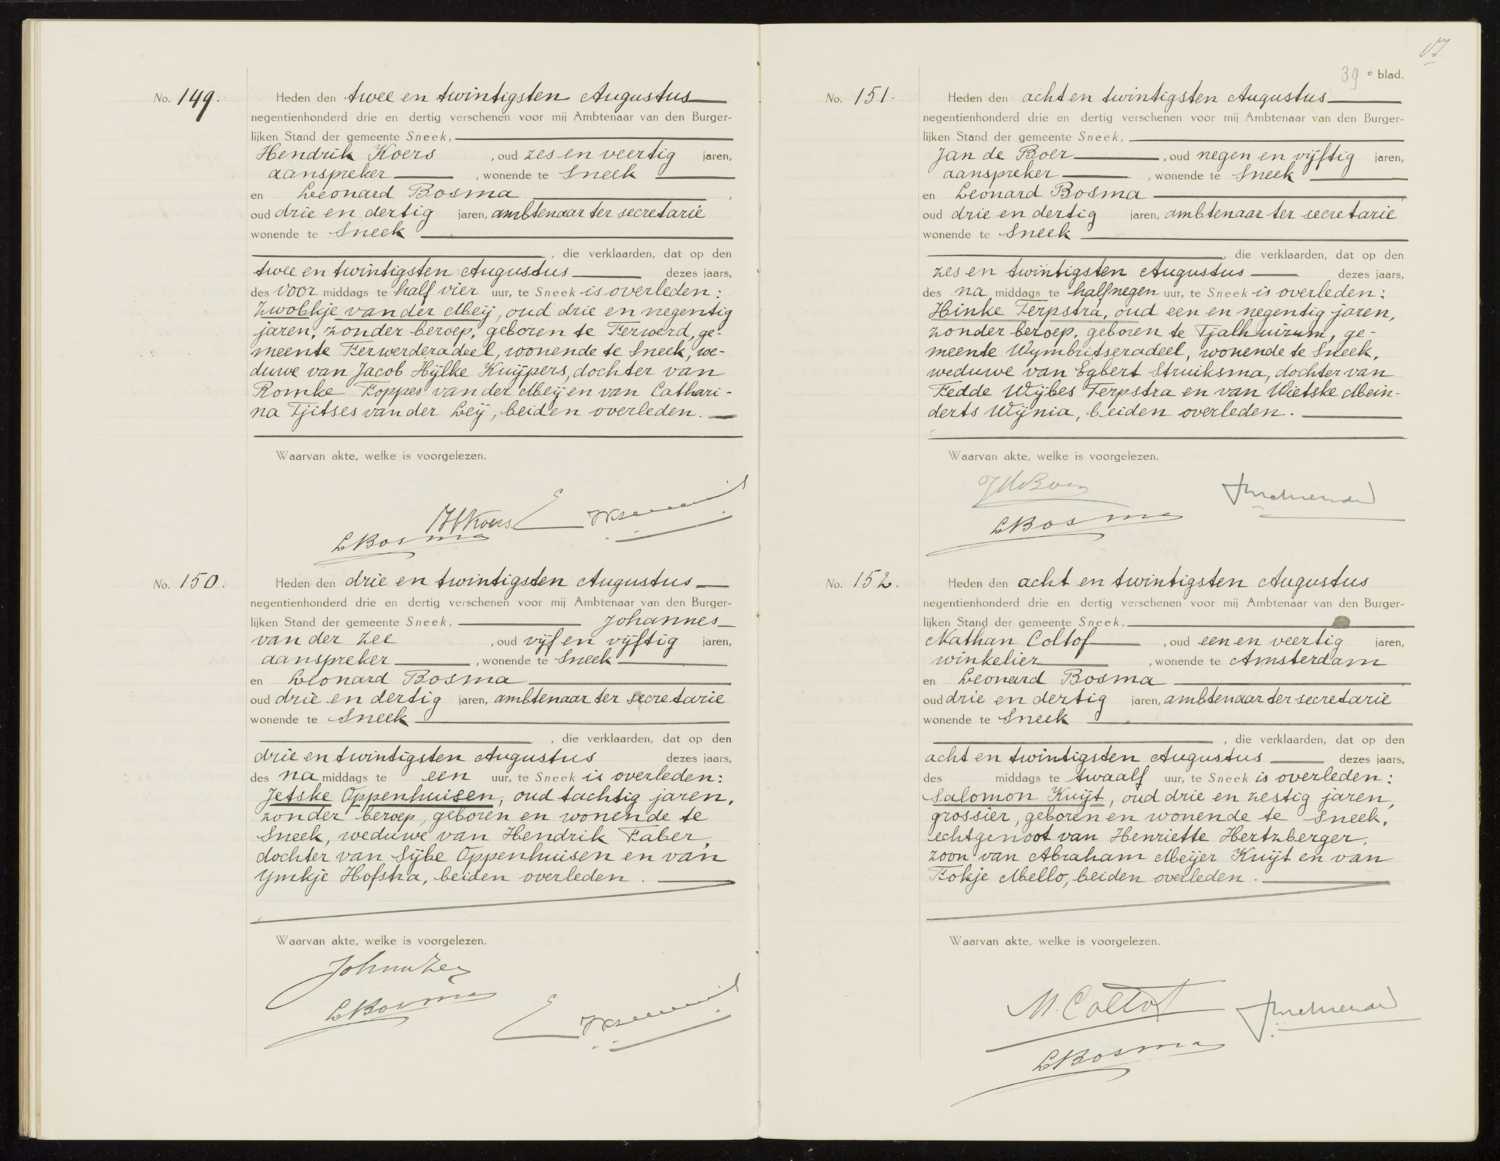 No. 149.
Heden den twee en twintigsten Augustus
negentienhonderd drie en dertig verschenen voor mij Ambtenaar van den Burger-
lijken Stand der gemeente Sneek,
Hendrik Koers, oud zes en veertig jaren,
aanspreker, wonende te Sneek
en Leonard Bosma,
oud drie en dertig jaren, ambtenaar ter secretarie
wonende te Sneek
, die verklaarden, dat op den
twee en twintigsten Augustus dezes jaars,
des voor middags te half vier uur, te Sneek is overleden:
Zwobkje van der Meij, oud drie en negentig
jaren, zonder beroep, geboren te Ferwerd, ge-
meente Ferwerderadeel, wonende te Sneek, we-
duwe van Jacob Hijlke Kuijpers, dochter van
Romke Foppes van der Meij en van Cathari-
na Tjitses van der Leij, beiden overleden.
Waarvan akte, welke is voorgelezen.
HKoers
LBosma
No. 150.
Heden den drie en twintigsten Augustus
negentienhonderd drie en dertig verschenen voor mij Ambtenaar van den Burger-
lijken Stand der gemeente Sneek, Johannes
van der Zee, oud vijf en vijftig jaren,
aanspreker, wonende te Sneek
en Leonard Bosma
oud drie en dertig jaren, ambtenaar ter secretarie
wonende te Sneek
, die verklaarden, dat op den
drie en twintigsten Augustus dezes jaars,
des na middags te een uur, te Sneek is overleden:
Jetske Oppenhuisen, oud tachtig jaren,
zonder beroep, geboren en wonende te
Sneek, weduwe van Hendrik Faber,
dochter van Sijbe Oppenhuisen en van
Ymkje Hofstra, beiden overleden.
Waarvan akte, welke is voorgelezen.
LBosma
39e blad.
No. 151.
Heden den acht en twintigsten Augustus
negentienhonderd drie en dertig verschenen voor mij Ambtenaar van den Burger-
lijken Stand der gemeente Sneek,
Jan de Boer, oud negen en vijftig jaren,
aanspreker, wonende te Sneek
en Leonard Bosma
oud drie en dertig jaren, ambtenaar ter secretarie
wonende te Sneek
, die verklaarden, dat op den
zes en twintigsten Augustus dezes jaars,
des na middags te half negen uur, te Sneek is overleden:
Hinke Terpstra, oud een en negentig jaren,
zonder beroep, geboren te Tjalhuizum, ge-
meente Wymbritseradeel, wonende te Sneek,
weduwe van Egbert Struiksma, dochter van
Fedde Wijbes Terpstra en van Wietske Mein-
derts Wijnia, beiden overleden.
Waarvan akte, welke is voorgelezen.
JdeBoer
LBosma
No. 152.
Heden den acht en twintigsten Augustus
negentienhonderd drie en dertig verschenen voor mij Ambtenaar van den Burger-
lijken Stand der gemeente Sneek,
Nathan Coltof, oud een en veertig jaren,
winkelier, wonende te Amsterdam
en Leonard Bosma
oud drie en dertig jaren, ambtenaar ter secretarie
wonende te Sneek
, die verklaarden, dat op den
acht en twintigsten Augustus dezes jaars,
des middags te twaalf uur, te Sneek is overleden:
Salomon Kuijt, oud drie en zestig jaren,
grossier, geboren en wonende te Sneek,
echtgenoot van Henriette Hertzberger,
zoon van Abraham Meijer Kuijt en van
Fokje Mello, beiden overleden.
Waarvan akte, welke is voorgelezen.
N. Coltof
LBosma